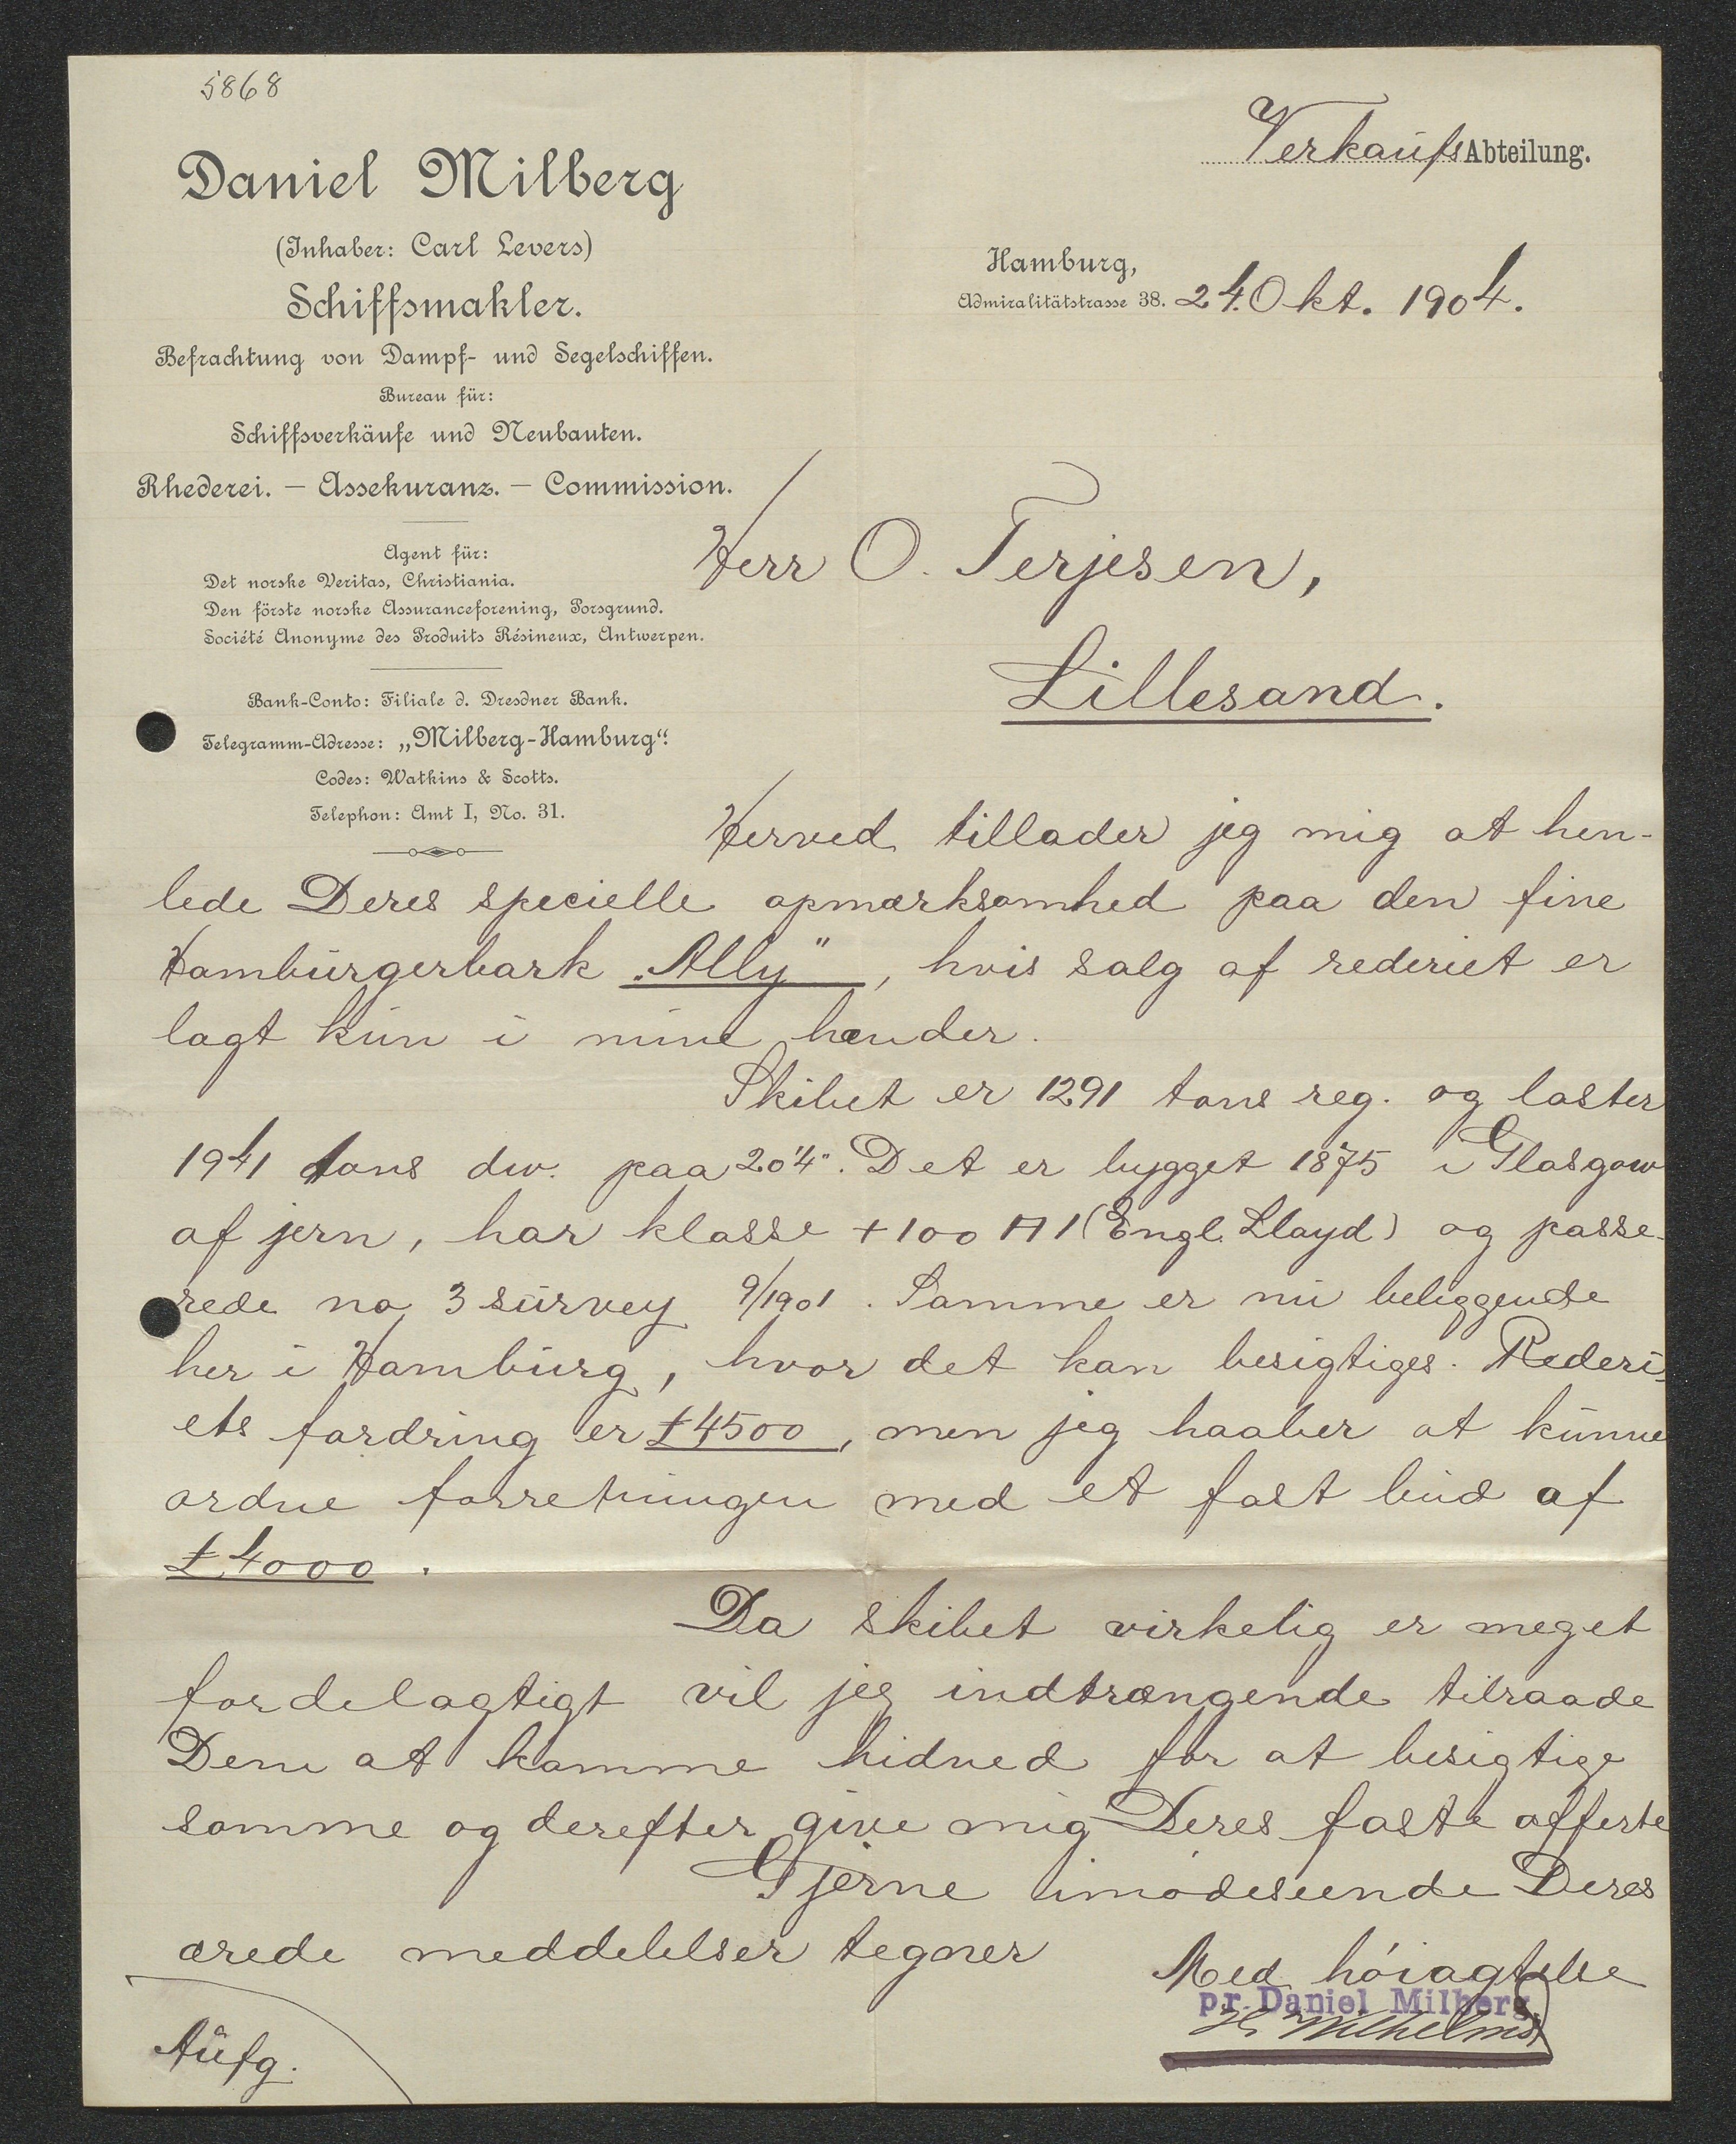 5868
Daniel Milberg
(Inhaber: Carl Levers)
Schiffsmakler.
Befrachtung von Dampf- und Segelschiffen.
Bureau für:
Schiffsverkäufe und Neubauten.
Rhederei. — Assekuranz. — Commission.
Agent für:
Det norske Veritas, Christiania.
Den förste norske Assuranceforening, Porsgrund.
Société Anonyme des Produits Résineux, Antwerpen.
Bank-Conto: Filiale d. Dresdner Bank.
Telegramm-Adresse: „Milberg-Hamburg“.
Codes: Watkins & Scotts.
Telephon: Amt I, No. 31.
Verkaufs Abteilung.
Hamburg,
Admiralitätstrasse 38. 24. Okt. 1904.
Herr O. Terjesen,
Lillesand.
Herved tillader jeg mig at hen-
lede Deres specielle opmærksomhed paa den fine
Hamburgerbark „Ally“, hvis salg af rederiet er
lagt kun i mine hænder.
Skibet er 1291 tons reg. og laster
1941 tons dw. paa 20'4". Det er bygget 1875 i Glasgow
af jern, har klasse + 100 A 1 (Engl. Lloyd) og passe-
rede no 3 survey 9/1901. Samme er nu beliggende
her i Hamburg, hvor det kan besigtiges. Rederi-
ets fordring er £4500, men jeg haaber at kunne
ordne forretningen med et fast bud af
£4000.
Da skibet virkelig er meget
fordelagtigt vil jeg indtrængende tilraade
Dem at komme hidned for at besigtige
samme og derefter give mig Deres faste offerte
Gjerne imødeseende Deres
ærede meddelelser tegner
Med höiagtelse
pr. Daniel Milberg.
H. Wilhelms
Aufg.